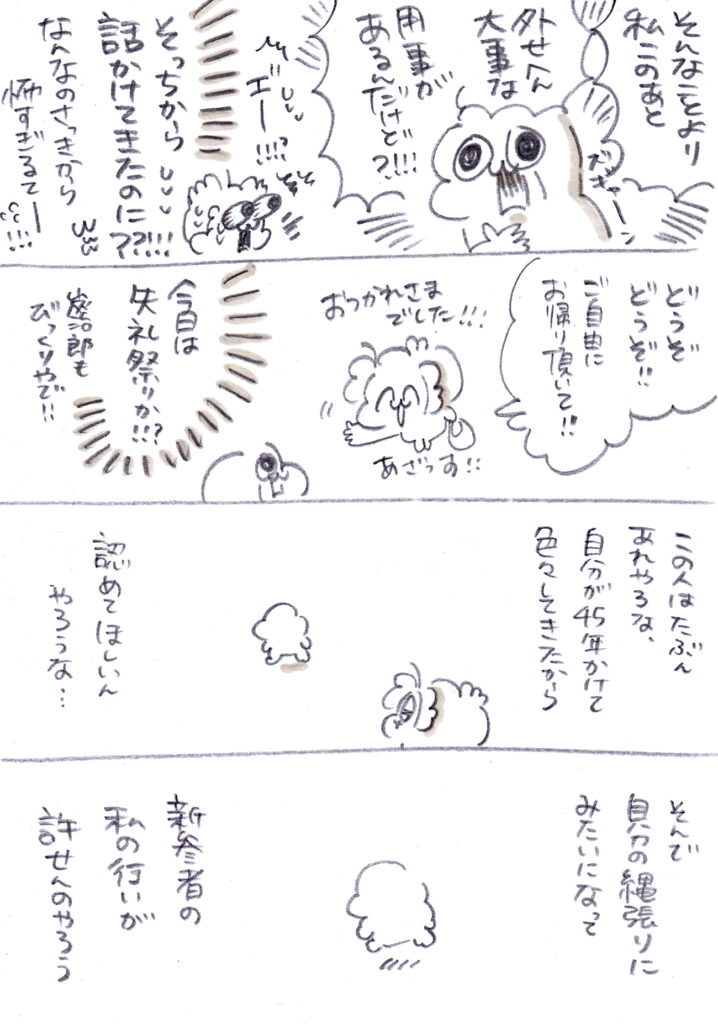 そんなことより
私このあと
外せへん
大事な
用事が
あるんだけど?!!!
ズギャーン
エー!!!?
そっちから
話かけてきたのに??!!!
なんなのさっきから
怖すぎるてー!!!
どうぞ
どうぞ!!
ご自由に
お帰り頂いて!!
おつかれさま
でした!!!
あざっす!!
今日は
失礼祭りか!!?
びっくりやで!!
この人はたぶん
あれやろな、
自分が45年かけて
色々してきたから
認めてほしいん
やろうな…
そんで
自分の縄張りに
みたいになって
新参者の
私の行いが
許せんのやろう